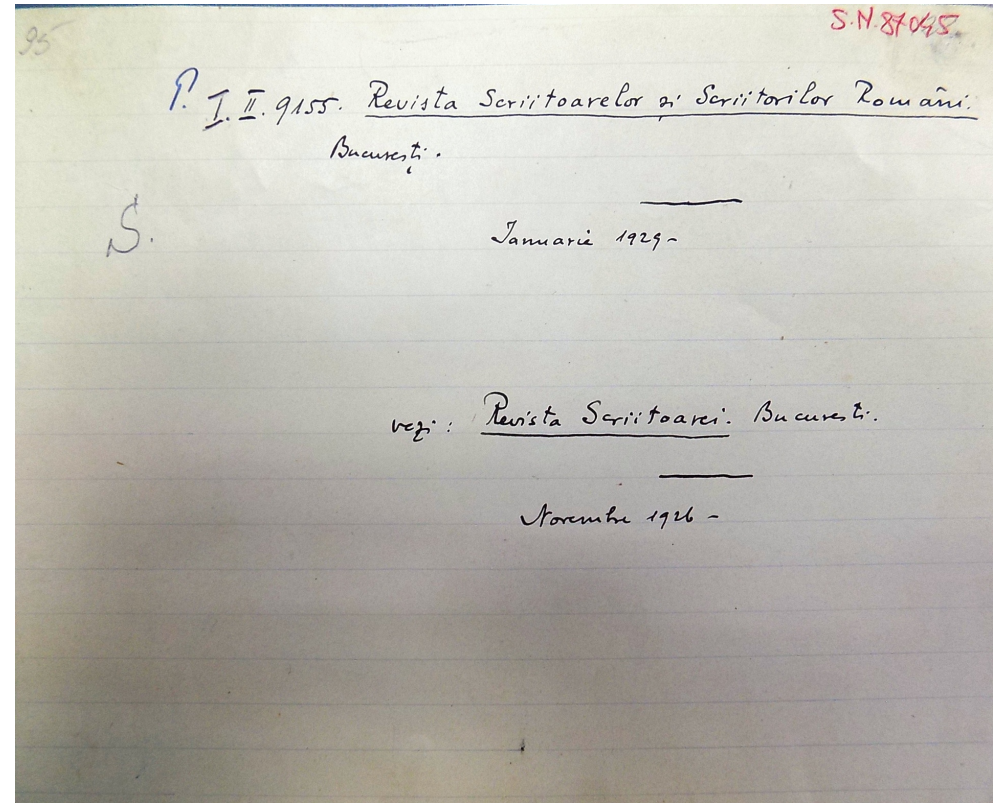 95
S.N. 87045
P. I. II. 9155. Revista Scriitoarelor și Scriitorilor Români.
București.
S.
Ianuarie 1929-
vezi: Revista Scriitoarei. Bucuresti.
Novembre 1926-